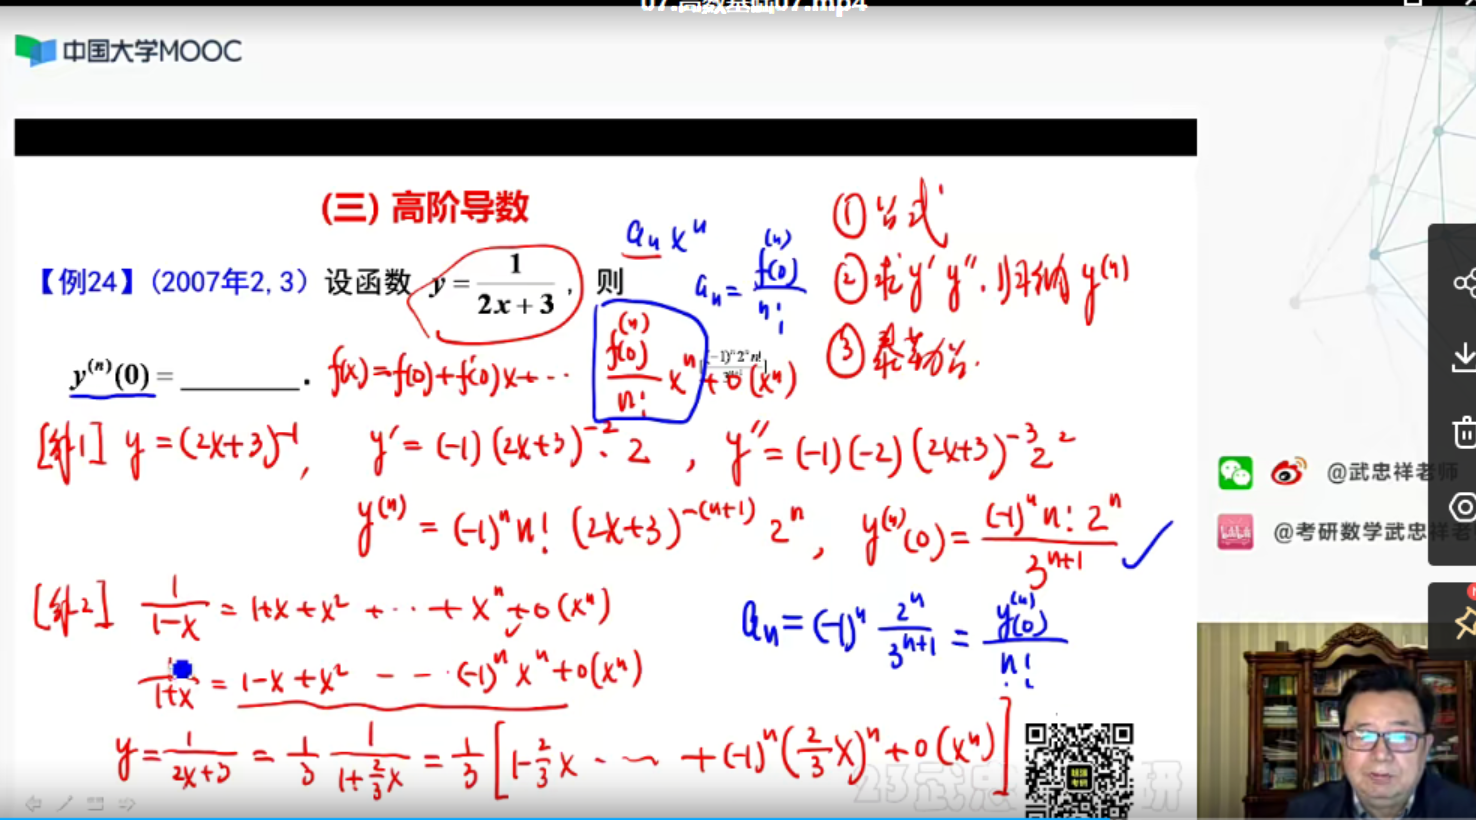 07.高数基础07.mp4
中国大学MOOC
(三) 高阶导数
【例24】(2007年2, 3) 设函数 y = 1/(2x + 3), 则
y⁽ⁿ⁾(0) = ________.
aₙ xⁿ
aₙ = f⁽ⁿ⁾(0)/n!
① 公式
② 求 y′ y″, 归纳 y⁽ⁿ⁾
③ 泰勒公式.
f(x) = f(0) + f′(0)x + ⋯ f⁽ⁿ⁾(0)/n! xⁿ + o(xⁿ)
[解1] y = (2x+3)⁻¹, y′ = (-1)(2x+3)⁻²·2, y″ = (-1)(-2)(2x+3)⁻³2²
y⁽ⁿ⁾ = (-1)ⁿ n! (2x+3)⁻⁽ⁿ⁺¹⁾ 2ⁿ, y⁽ⁿ⁾(0) = (-1)ⁿ n! 2ⁿ/3ⁿ⁺¹ ✓
[解2] 1/(1-x) = 1+x+x² + ⋯ + xⁿ + o(xⁿ)
aₙ = (-1)ⁿ 2ⁿ/3ⁿ⁺¹ = y⁽ⁿ⁾(0)/n!
1/(1+x) = 1-x+x² - - ⋅(-1)ⁿ xⁿ + o(xⁿ)
y = 1/(2x+3) = 1/3 1/(1+2/3x) = 1/3 [1-2/3x ⋯ + (-1)ⁿ(2/3x)ⁿ + o(xⁿ)]
@武忠祥老师
@考研数学武忠祥老